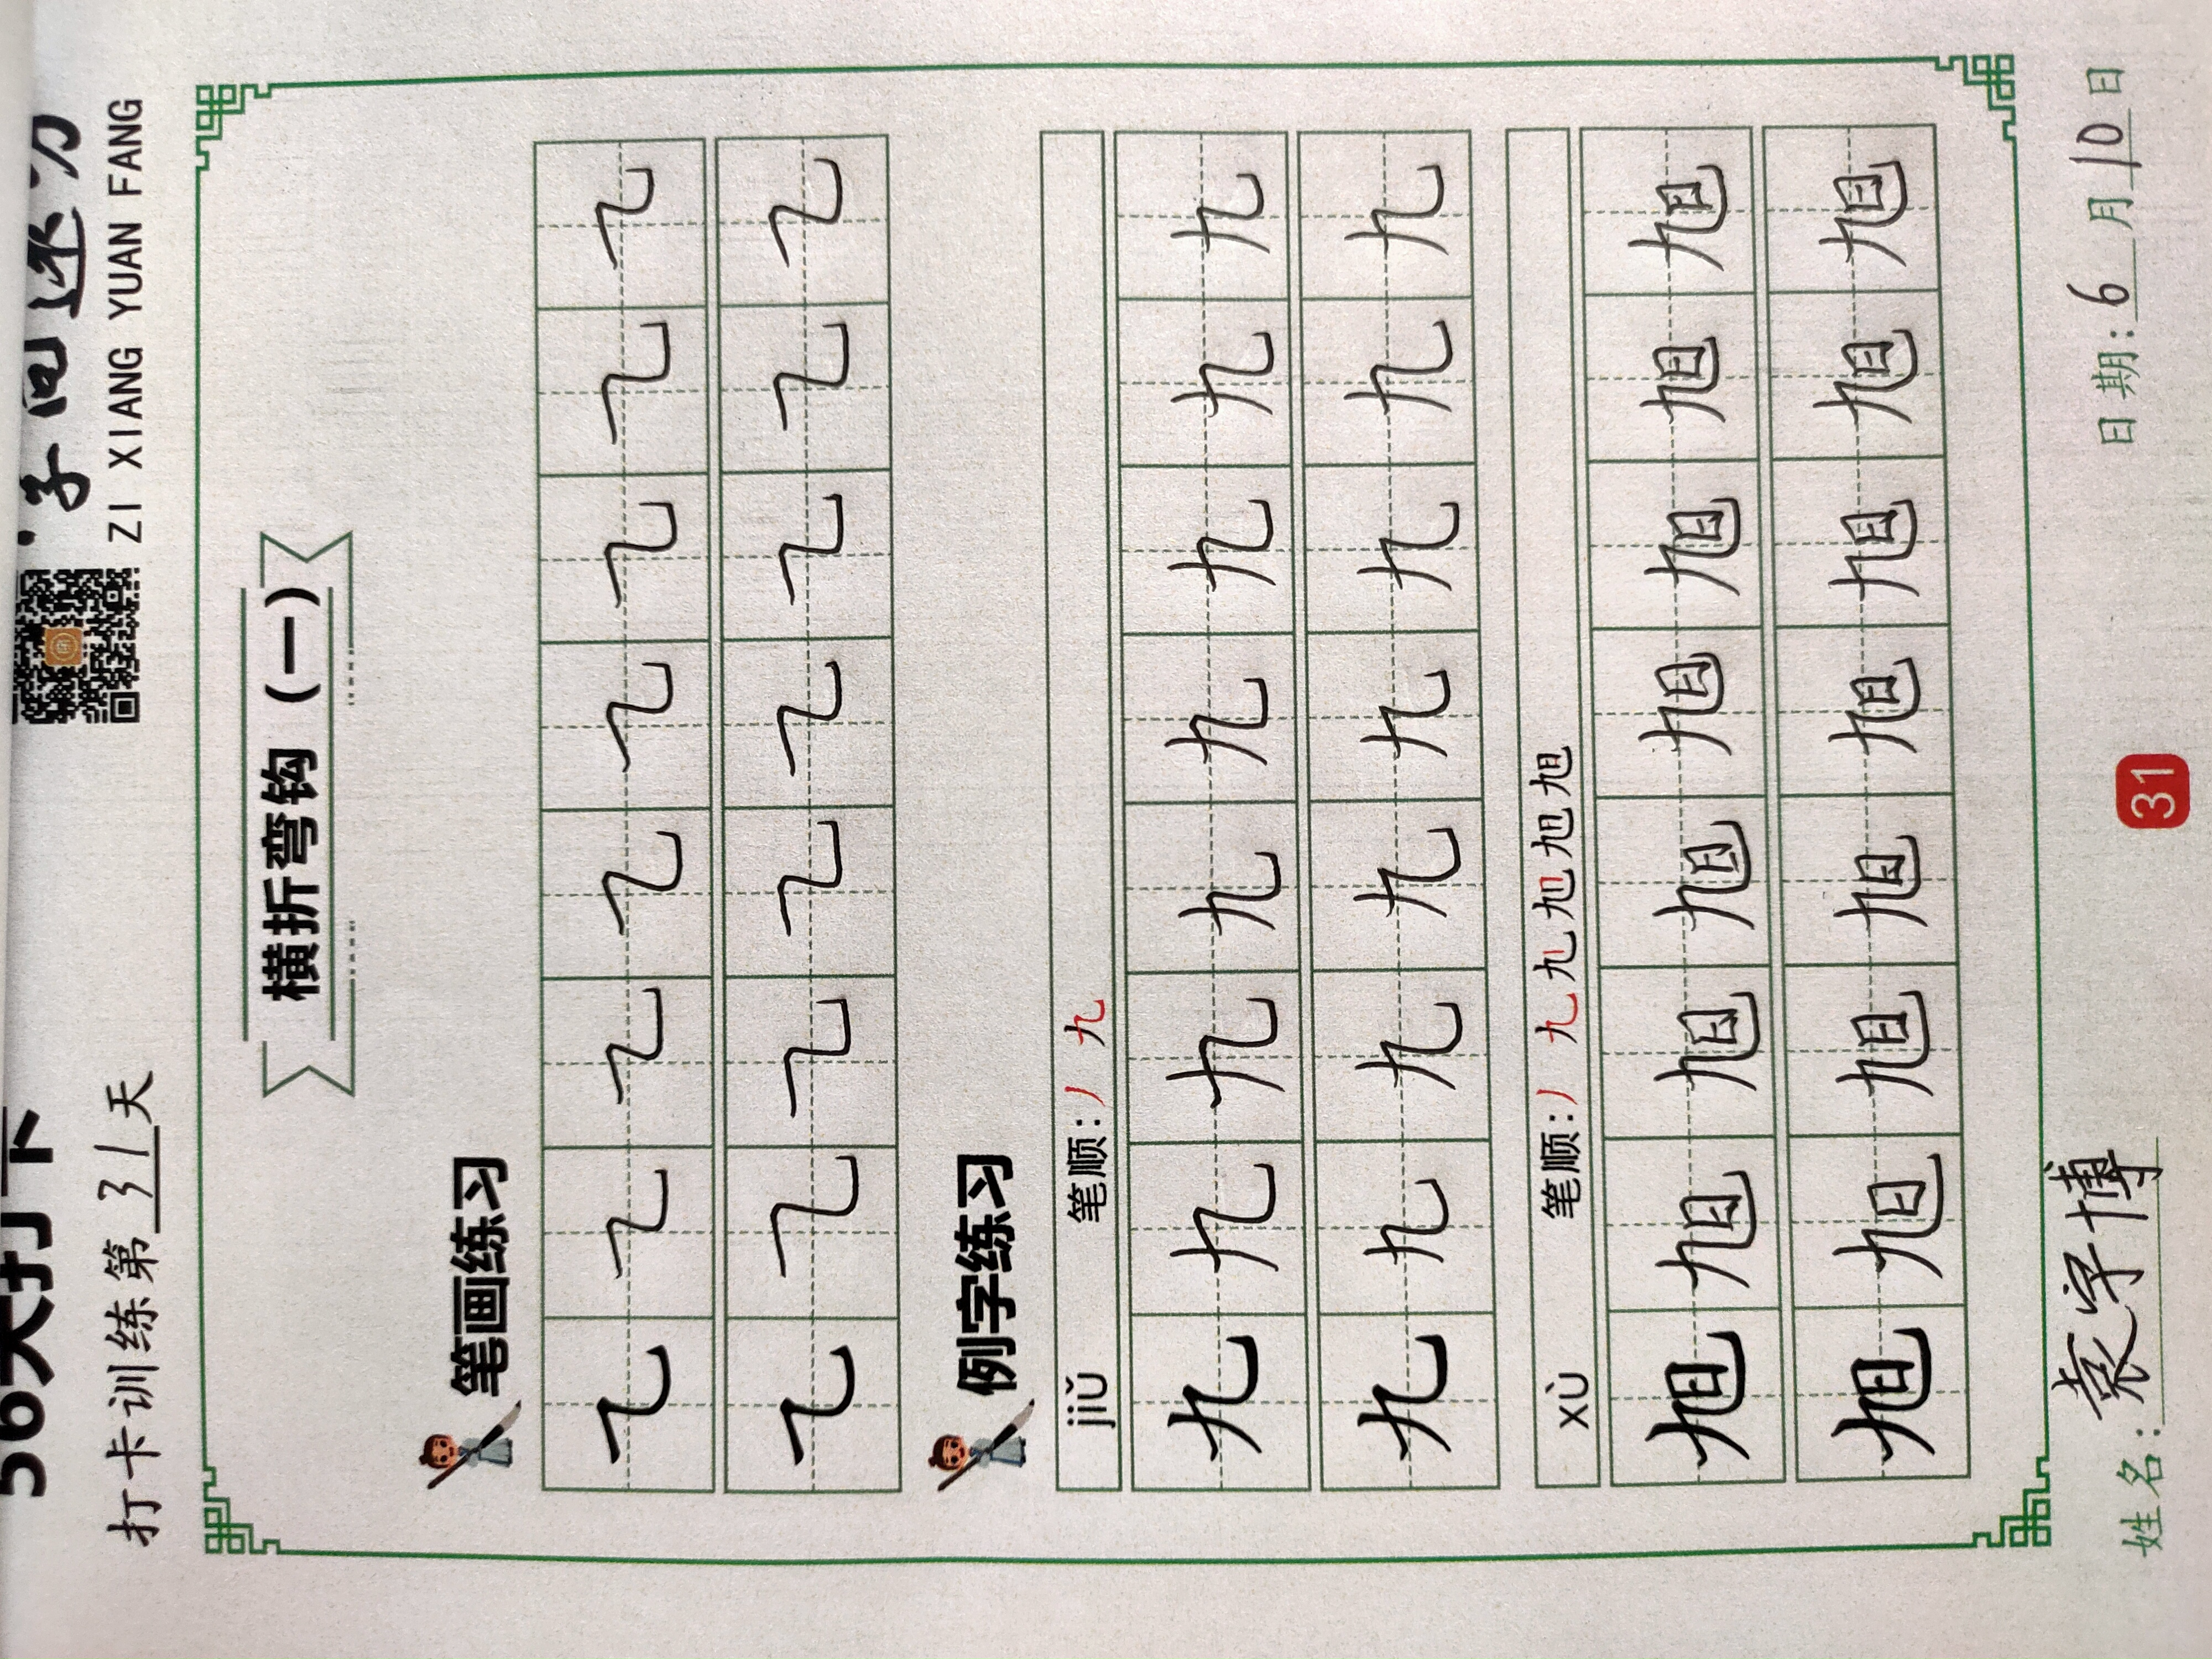 56天打卡
ZI XIANG YUAN FANG
打卡训练第31天
横折弯钩（一）
笔画练习
㇈ ㇈ ㇈ ㇈ ㇈ ㇈ ㇈ ㇈
㇈ ㇈ ㇈ ㇈ ㇈ ㇈ ㇈ ㇈
例字练习
jiǔ 笔顺：丿 九
九 九 九 九 九 九 九 九
九 九 九 九 九 九 九 九
xù 笔顺：丿 九 九 旭 旭 旭
旭 旭 旭 旭 旭 旭 旭 旭
旭 旭 旭 旭 旭 旭 旭 旭
姓名：袁宇博 31 日期：6月10日